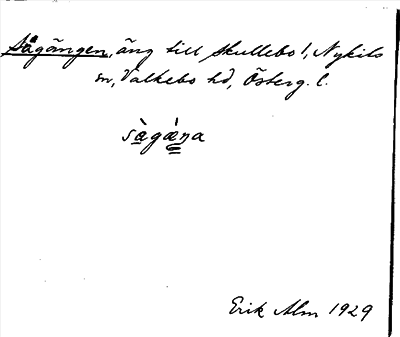 Sågängen, äng till Skullebo 1, Nykils
sn, Valkebo hd, Österg. l.
Erik Alm 1929